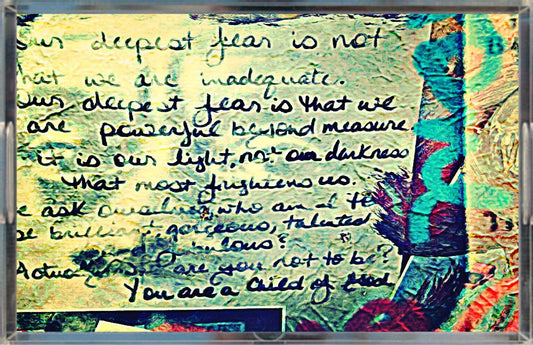 Our deepest fear is not
that we are inadequate.
Our deepest fear is that we
are powerful beyond measure
it is our light, not our darkness
that most frightens us.
e ask ourselves, who am I to
be brilliant, gorgeous, talented
fabulous?
Actually are you not to be?
You are a child of God